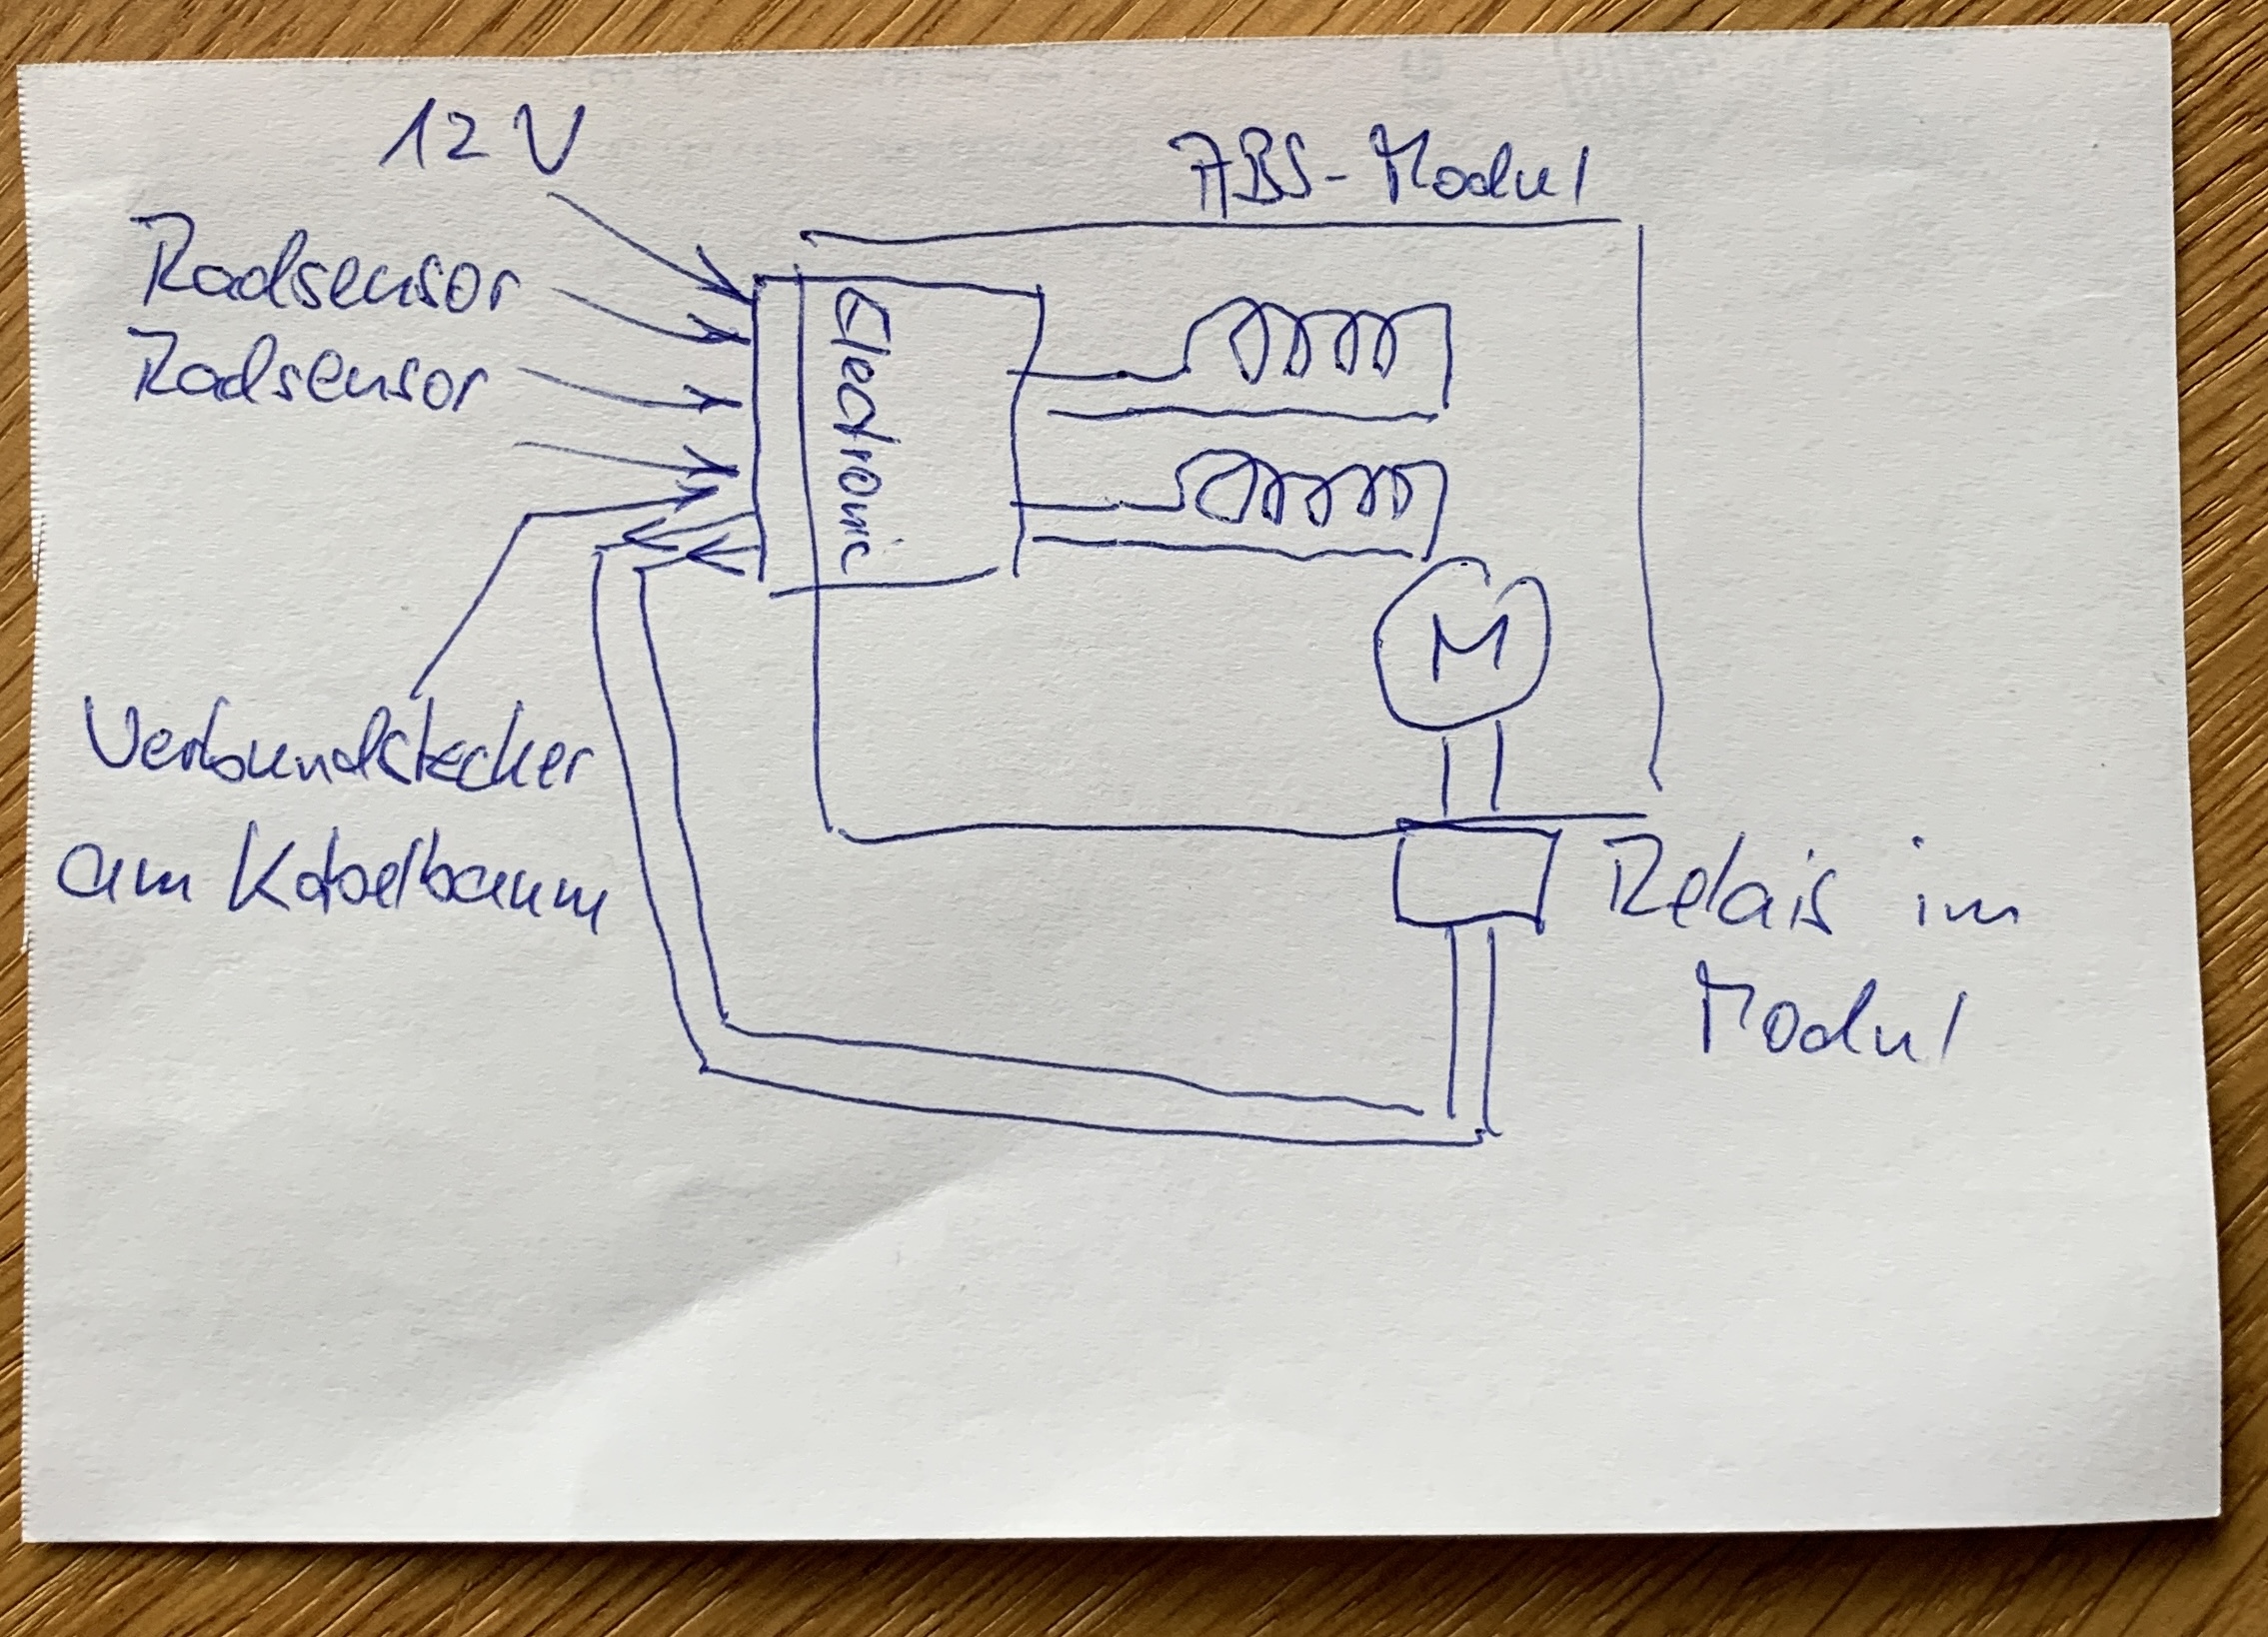 12 V
ABS-Modul
Radsensor
Radsensor
Electronic
M
Verbundstecker
am Kabelbaum
Relais im
Modul